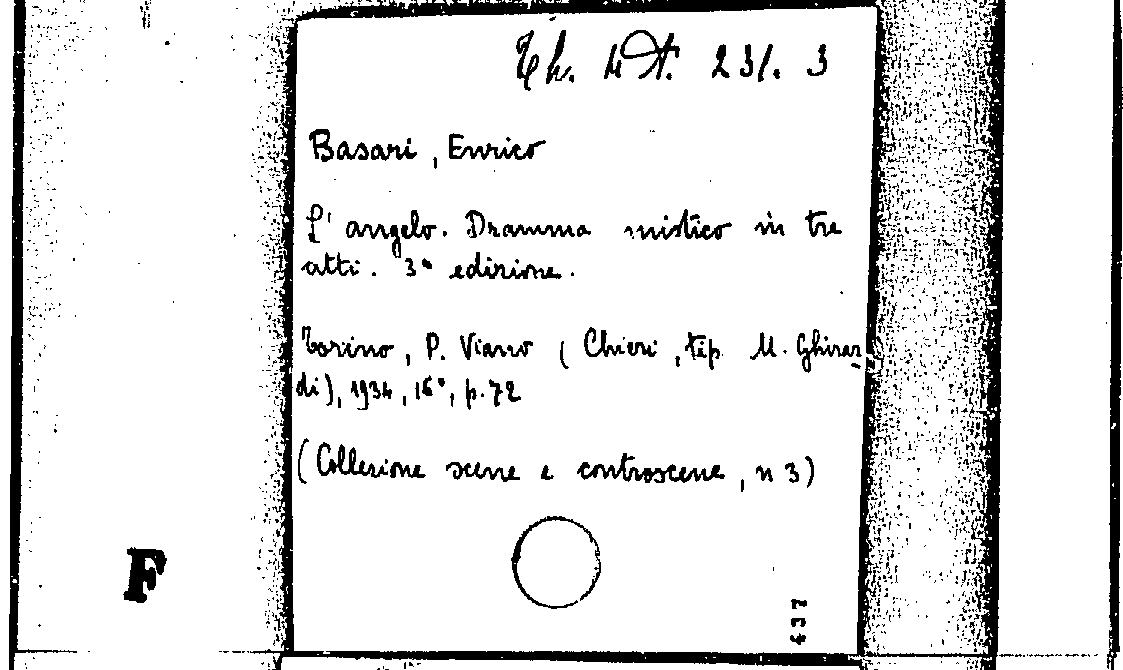 Th. 4 A. 231. 3
Basari, Enrico
L' angelo. Dramma mistico in tre
atti. 3ª edizione.
Torino, P. Viano (Chieri, tip. M. Ghirar
di), 1934, 16°, p. 72
(Collezione scene e controscene, n 3)
F
437